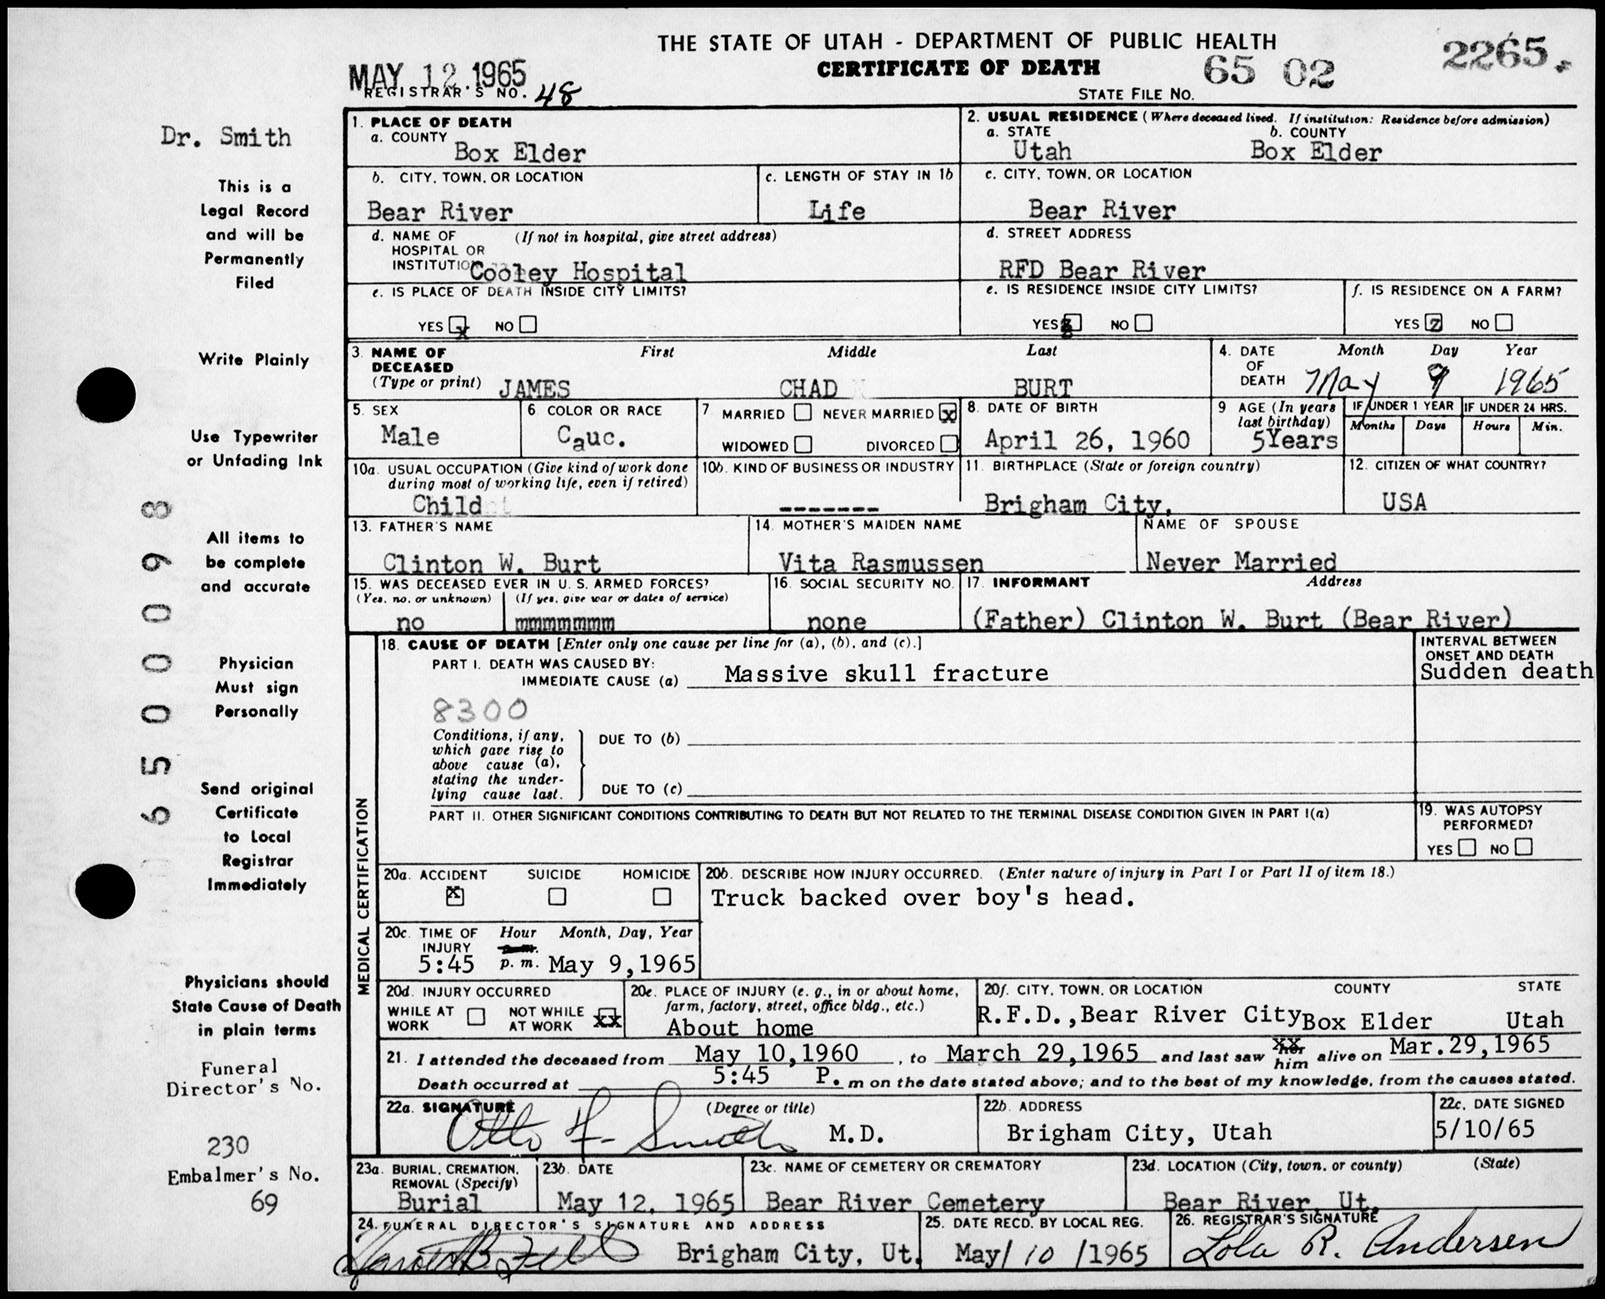 THE STATE OF UTAH - DEPARTMENT OF PUBLIC HEALTH
CERTIFICATE OF DEATH
MAY 12.1965
REGISTRAR'S NO. 48
65 02 2265.
STATE FILE NO.
Dr. Smith
This is a
Legal Record
and will be
Permanently
Filed
Write Plainly
Use Typewriter
or Unfading Ink
All items to
be complete
and accurate
Physician
Must sign
Personally
Send original
Certificate
to Local
Registrar
Immediately
Physicians should
State Cause of Death
in plain terms
Funeral
Director's No.
230
Embalmer's No.
69
65000 93
1. PLACE OF DEATH
a. COUNTY
Box Elder
2. USUAL RESIDENCE (Where deceased lived. If institution: Residence before admission)
a. STATE b. COUNTY
Utah Box Elder
b. CITY, TOWN, OR LOCATION
Bear River
c. LENGTH OF STAY IN 1b
Life
c. CITY, TOWN, OR LOCATION
Bear River
d. NAME OF (If not in hospital, give street address)
HOSPITAL OR
INSTITUTION Cooley Hospital
d. STREET ADDRESS
RFD Bear River
e. IS PLACE OF DEATH INSIDE CITY LIMITS?
YES x NO
e. IS RESIDENCE INSIDE CITY LIMITS?
YES NO
f. IS RESIDENCE ON A FARM?
YES NO
3. NAME OF DECEASED First Middle Last
(Type or print) JAMES CHAD BURT
4. DATE OF DEATH Month Day Year
May 9 1965
5. SEX
Male
6 COLOR OR RACE
Cauc.
7 MARRIED NEVER MARRIED x
WIDOWED DIVORCED
8. DATE OF BIRTH
April 26, 1960
9 AGE (In years last birthday)
5Years
IF UNDER 1 YEAR IF UNDER 24 HRS.
Months Days Hours Min.
10a. USUAL OCCUPATION (Give kind of work done
during most of working life, even if retired)
Child
10b. KIND OF BUSINESS OR INDUSTRY
-------
11. BIRTHPLACE (State or foreign country)
Brigham City,
12. CITIZEN OF WHAT COUNTRY?
USA
13. FATHER'S NAME
Clinton W. Burt
14. MOTHER'S MAIDEN NAME
Vita Rasmussen
NAME OF SPOUSE
Never Married
15. WAS DECEASED EVER IN U. S. ARMED FORCES?
(Yes, no, or unknown) (If yes, give war or dates of service)
no mmmmmmm
16. SOCIAL SECURITY NO.
none
17. INFORMANT Address
(Father) Clinton W. Burt (Bear River)
18. CAUSE OF DEATH [Enter only one cause per line for (a), (b), and (c).]
PART I. DEATH WAS CAUSED BY:
IMMEDIATE CAUSE (a) Massive skull fracture
INTERVAL BETWEEN
ONSET AND DEATH
Sudden death
8300
Conditions, if any,
which gave rise to
above cause (a),
stating the under-
lying cause last.
DUE TO (b)
DUE TO (c)
PART II. OTHER SIGNIFICANT CONDITIONS CONTRIBUTING TO DEATH BUT NOT RELATED TO THE TERMINAL DISEASE CONDITION GIVEN IN PART I(a)
19. WAS AUTOPSY
PERFORMED?
YES NO
MEDICAL CERTIFICATION
20a. ACCIDENT SUICIDE HOMICIDE
x
20b. DESCRIBE HOW INJURY OCCURRED. (Enter nature of injury in Part I or Part II of item 18.)
Truck backed over boy's head.
20c. TIME OF INJURY Hour Month, Day, Year
5:45 p. m. May 9,1965
20d. INJURY OCCURRED
WHILE AT WORK NOT WHILE AT WORK xx
20e. PLACE OF INJURY (e. g., in or about home,
farm, factory, street, office bldg., etc.)
About home
20f. CITY, TOWN, OR LOCATION COUNTY STATE
R.F.D.,Bear River City Box Elder Utah
21. I attended the deceased from May 10,1960, to March 29,1965 and last saw him alive on Mar.29,1965
Death occurred at 5:45 P. m on the date stated above; and to the best of my knowledge, from the causes stated.
22a. SIGNATURE (Degree or title)
Otto F. Smith M.D.
22b. ADDRESS
Brigham City, Utah
22c. DATE SIGNED
5/10/65
23a. BURIAL, CREMATION,
REMOVAL (Specify)
Burial
23b. DATE
May 12, 1965
23c. NAME OF CEMETERY OR CREMATORY
Bear River Cemetery
23d. LOCATION (City, town, or county) (State)
Bear River Ut.
24. FUNERAL DIRECTOR'S SIGNATURE AND ADDRESS
Brigham City, Ut.
25. DATE RECD. BY LOCAL REG.
May/10/1965
26. REGISTRAR'S SIGNATURE
Lola R. Andersen